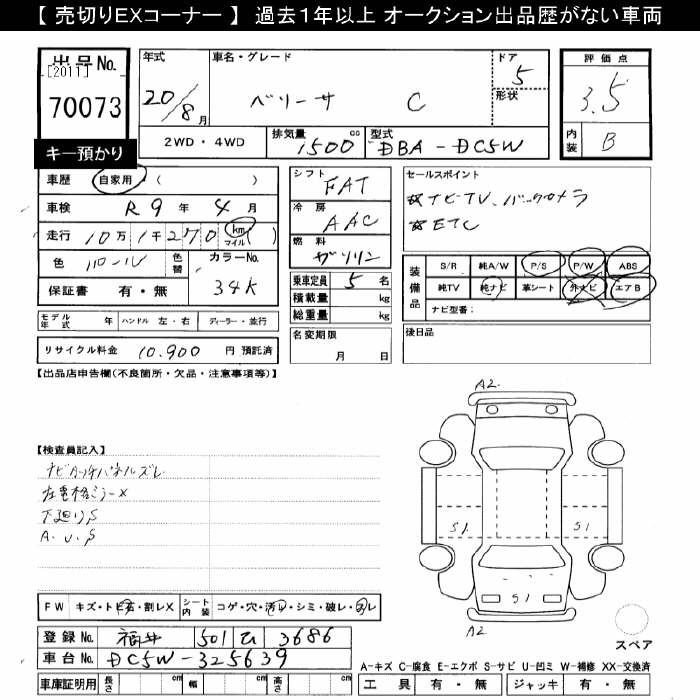 【 売切りEXコーナー 】 過去1年以上 オークション出品歴がない車両
出品No.
[2011]
70073
キー預かり
年式 車名・グレード ドア
20/8月 ベリーサ C 5
形状
2WD・4WD 排気量 1500 cc 型式 DBA-DC5W
評価点
3.5
内装 B
車歴 自家用・( )
車検 R9年 4月
走行 10万1千270 (km マイル)
色 パール 色替 カラーNo. 34K
保証書 有・無
モデル年式 年 ハンドル 左・右 ディーラー・並行
リサイクル料金 10.900 円 預託済
シフト FAT
冷房 AAC
燃料 ガソリン
乗車定員 5 名
積載量 kg
総重量 kg
名変期限
月 日
セールスポイント
☆ナビTV、バックカメラ
☆ETC
装備品 S/R 純A/W P/S P/W ABS
純TV 純ナビ 革シート 外ナビ エアB
ナビ型番:
後日品
【出品店申告欄(不良箇所・欠品・注意事項等)】
【検査員記入】
ナビタッチパネルズレ
左電格ミラーX
下廻りS
A.U.S
A2
S1 S1
S1
A2
スペア
FW キズ・トビ石・割レX シート内装 コゲ・穴・汚レ・シミ・破レ・スレ
登録No. 福井 501 3686
車台No. DC5W-325639
A-キズ C-腐食 E-エクボ S-サビ U-凹ミ W-補修 XX-交換済
車庫証明用 長さ cm 幅 cm 高さ cm 工具 有・無 ジャッキ 有・無